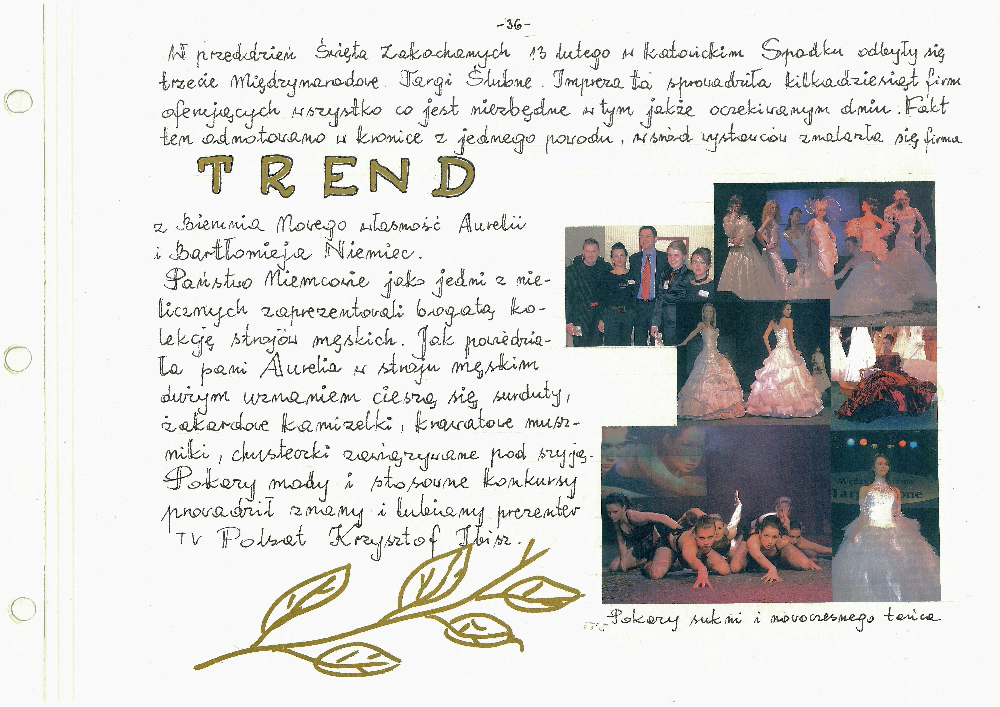 -36-
W przeddzień Święta Zakochanych 13 lutego w Katowickim Spodku odbyły się
trzecie Międzynarodowe Targi Ślubne. Impreza ta sprowadziła kilkadziesiąt firm
oferujących wszystko co jest niezbędne w tym jakże oczekiwanym dniu. Fakt
ten odnotowano w kronice z jednego powodu, wśród wystawców znalazła się firma
TREND
z Bierunia Nowego własność Aurelii
i Bartłomieja Niemiec.
Państwo Niemcowie jako jedni z nie-
licznych zaprezentowali bogatą ko-
lekcję strojów męskich. Jak powiedzia-
ła pani Aurelia w stroju męskim
dużym uznaniem cieszą się surduty,
żakardowe kamizelki, krawatowe musz-
niki, chusteczki zawiązywane pod szyją.
Pokazy mody i stosowne konkursy
prowadził znany i lubiany prezenter
TV Polsat Krzysztof Ibisz.
Pokazy sukni i nowoczesnego tańca